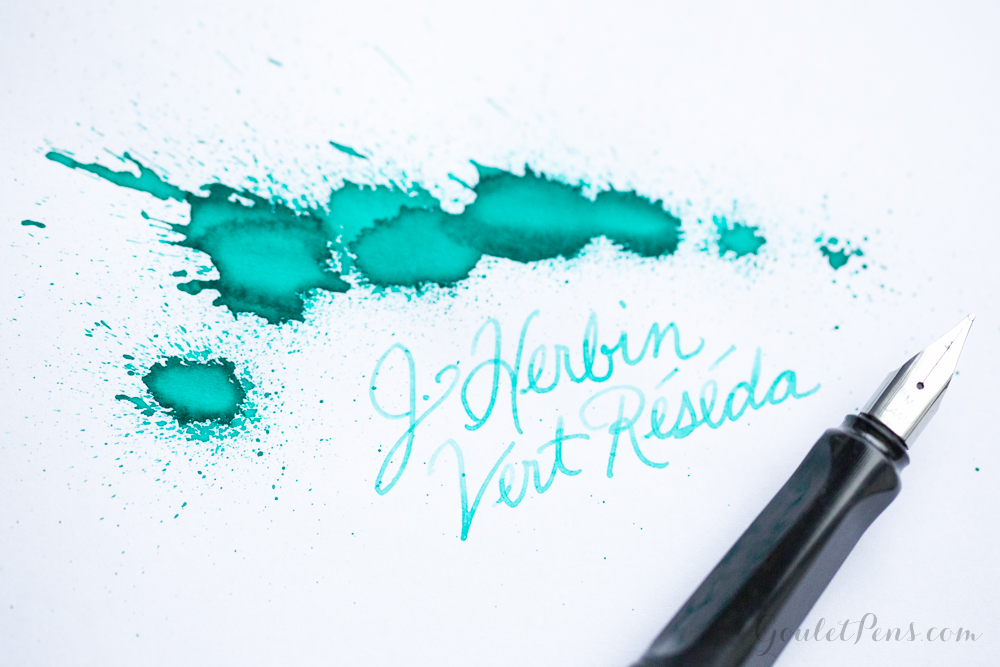 J. Herbin
Vert Réséda
GouletPens.com